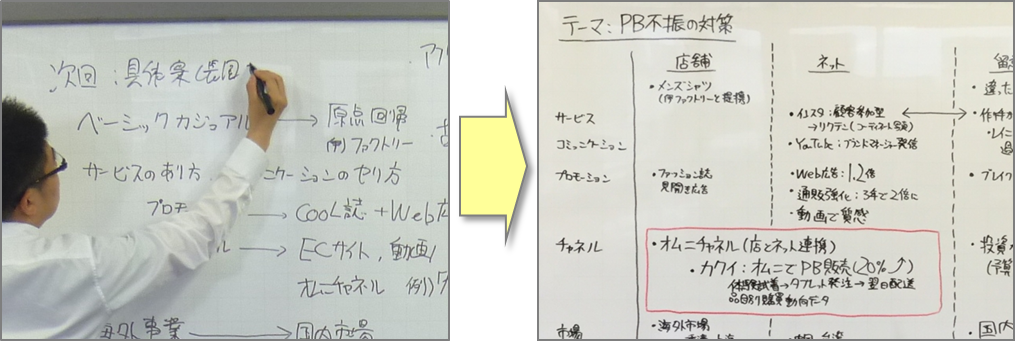 次回：具体案(表回
ベーシックカジュアル → 原点回帰
ファクトリー
サービスのあり方 ニケーションのやり方
プロモ → COOL誌 + Web広
→ ECサイト, 動画
オムニチャネル 例)
海外事業 → 国内市場
テーマ：PB不振の対策
店舗 ネット
・メンズシャツ
ファクトリーと提携)
違った
サービス
コミュニケーション
・インスタ：顧客参加型
・YouTube：ブランドマネージャー発信
プロモーション
・ファッション誌
見開き広告
・Web広告：1.2倍
・通販強化：3年で2倍に
・動画で質感
・ブレイク
チャネル
・オムニチャネル(店とネット連携)
・カワイ：オムニでPB販売(20%↑)
体験試着→タブレット発注→翌日配送
品目別購買動向データ
・投資
(予算
市場
・海外市場
・国内